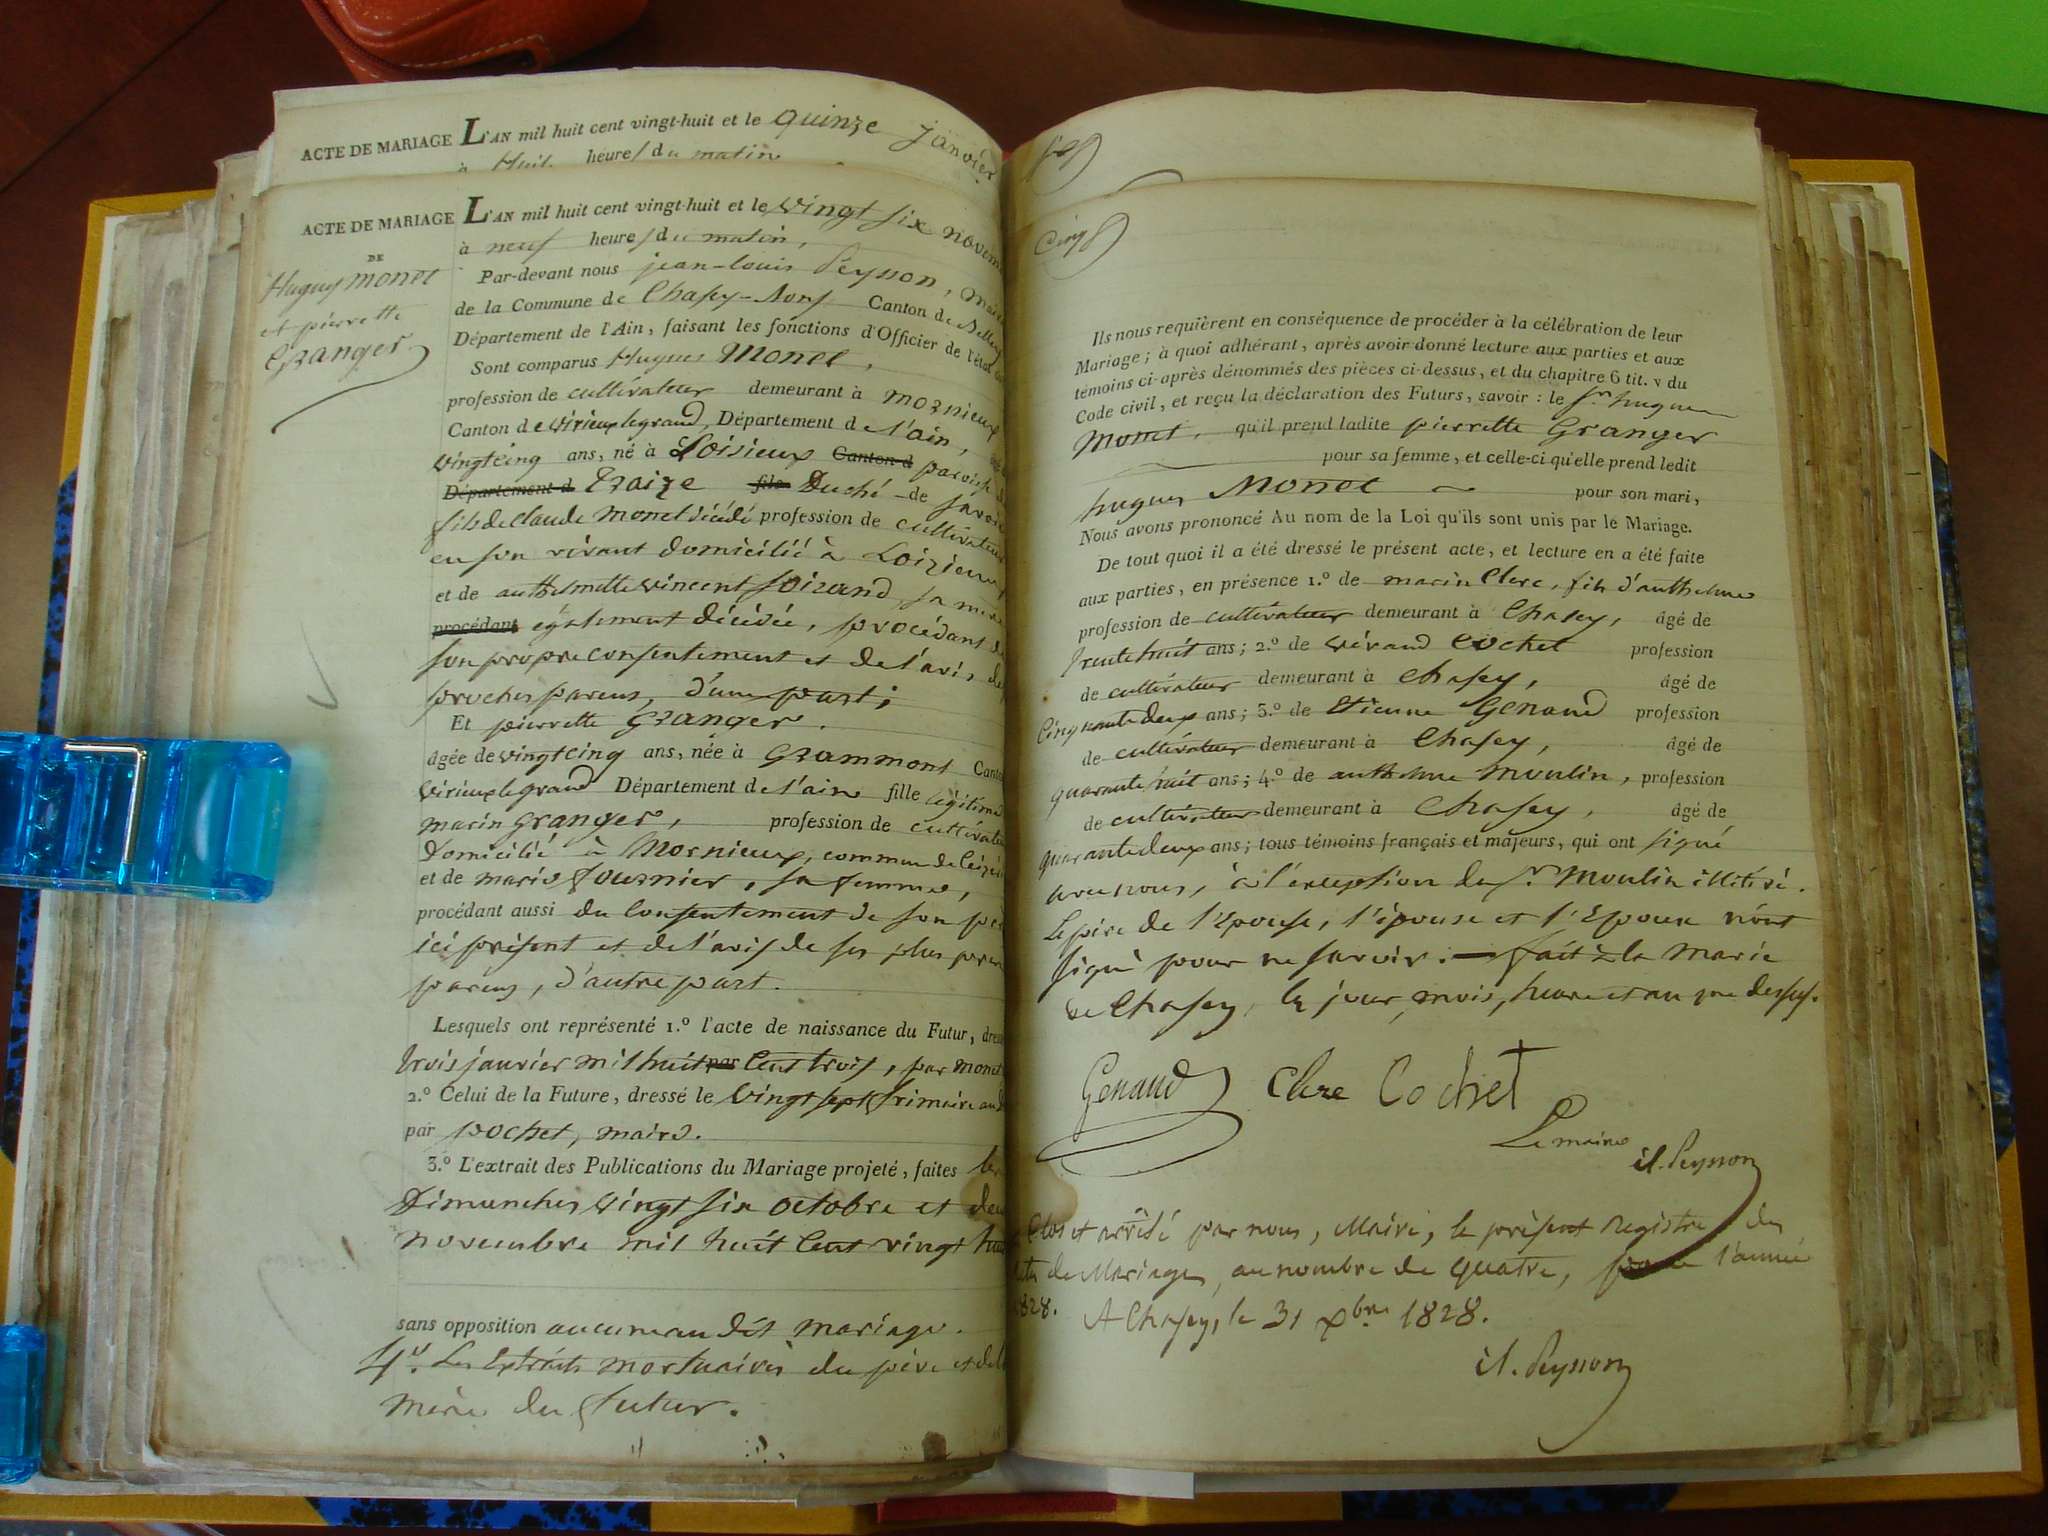 ACTE DE MARIAGE L'AN mil huit cent vingt-huit et le quinze janvier
à huit heures du matin
ACTE DE MARIAGE
DE
Hugues monet
et pierrette
Granger
L'AN mil huit cent vingt-huit et le vingt six novem
à neuf heures du matin,
Par-devant nous jean-louis Peysson, maire
de la Commune de Chasey-Bons Canton de Belley
Département de l'Ain, faisant les fonctions d'Officier de l'état
Sont comparus Hugues Monet,
profession de cultivateur demeurant à mornieux
Canton de virieux legrand, Département de l'ain,
vingt cinq ans, né à Loisieux Canton d paroisse
Département d Traize fils Duché de Savoie
fils de Claude monet décédé profession de cultivateur
en son vivant domicilié à Loizieux
et de anthelmette vincent Loirand sa mère
procédant également décédée, procédant de
son propre consentement et de l'avis de
proches parens, d'une part;
Et pierrette Granger.
âgée de vingt cinq ans, née à Grammont Canton
virieux legrand Département de l'ain fille légitime
marin Granger, profession de cultivateu
Domicilié à Mornieux, commune de Ceizé
et de marie fournier, sa femme,
procédant aussi du Consentement de son pè
ici présent et de l'avis de ses plus
parens, d'autre part.
Lesquels ont représenté 1.º l'acte de naissance du Futur, dres
trois janvier mil huit par Cent trois, par monet
2.º Celui de la Future, dressé le vingt sept frimaire an
par Cochet, maire.
3.º L'extrait des Publications du Mariage projeté, faites les
Dimanches vingt six octobre et deux
novembre mil huit Cent vingt hui
sans opposition aucune au dit mariage.
4º. Les Extraits mortuaires du père et de la
mère du futur.
Cinq
Ils nous requièrent en conséquence de procéder à la célébration de leur
Mariage; à quoi adhérant, après avoir donné lecture aux parties et aux
témoins ci-après dénommés des pièces ci-dessus, et du chapitre 6 tit. v du
Code civil, et reçu la déclaration des Futurs, savoir : le Sr hugues
Monet, qu'il prend ladite pierrette Granger
pour sa femme, et celle-ci qu'elle prend ledit
hugues Monet pour son mari,
Nous avons prononcé Au nom de la Loi qu'ils sont unis par le Mariage.
De tout quoi il a été dressé le présent acte, et lecture en a été faite
aux parties, en présence 1.º de marin Clerc, fils d'anthelme
profession de cultivateur demeurant à Chasey, âgé de
trente huit ans; 2.º de vérand Cochet profession
de cultivateur demeurant à Chasey, âgé de
Cinquante deux ans; 3.º de Etienne Genaud profession
de cultivateur demeurant à Chasey, âgé de
quarante huit ans; 4.º de anthelme Moulin, profession
de cultivateur demeurant à Chasey, âgé de
quarante deux ans; tous témoins français et majeurs, qui ont signé
avec nous, à l'exception du Sr Moulin illitéré.
Le père de l'Epouse, l'épouse et l'Epoux n'ont
signé pour ne savoir. fait à la Marie
de Chasey, les jour, mois, heure et an que dessus.
Genaud Clerc Cochet
Le maire
jl. Peysson
Clos et arrêté par nous, Maire, le présent Registre des
actes de Mariages, au nombre de quatre, pour l'année
1828. A Chasey, le 31 Xbre 1828.
jl. Peysson